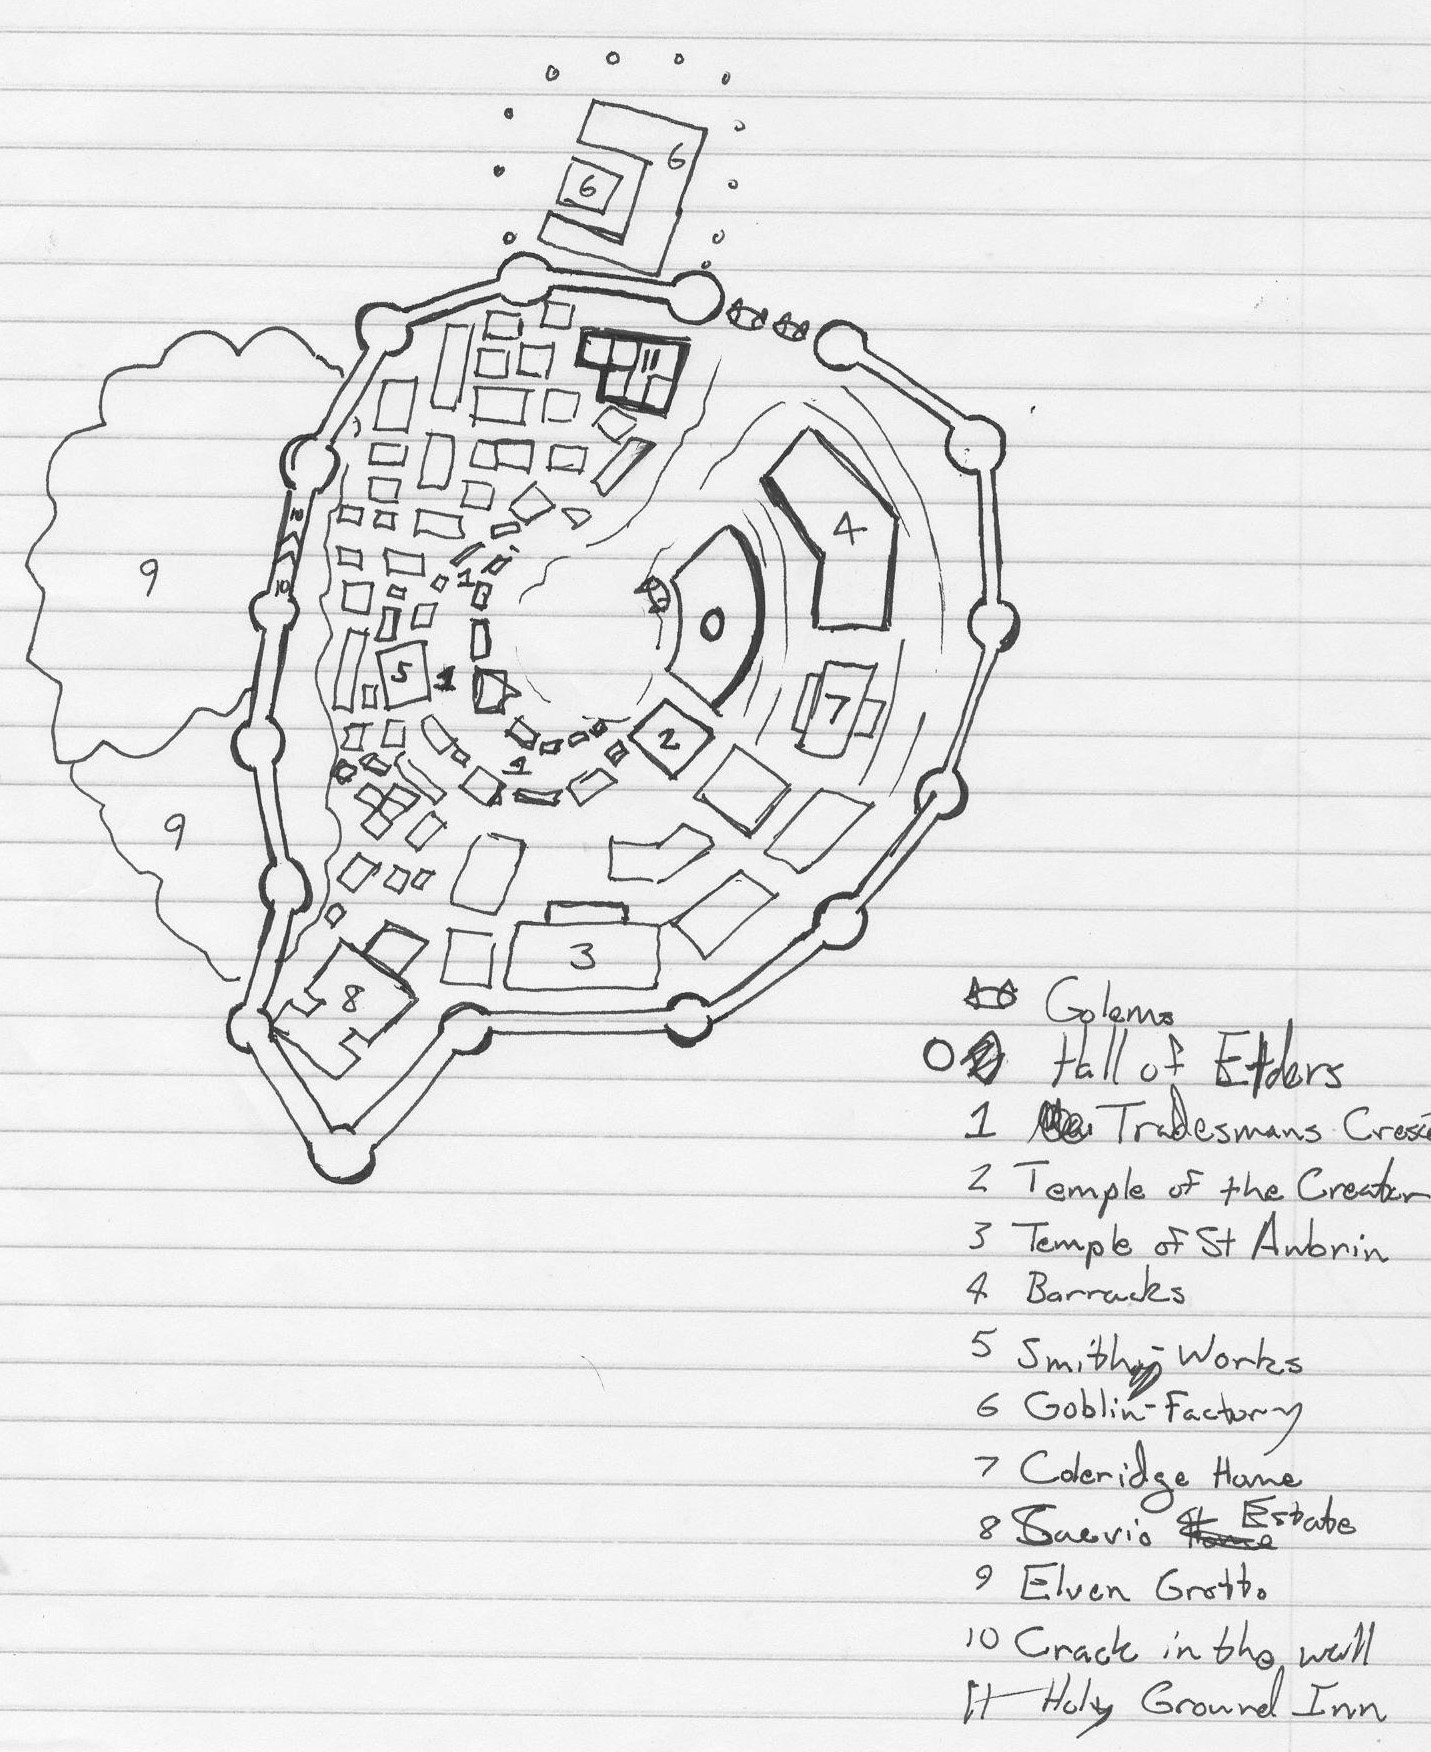 6
6
11
4
9
10
10
1
0
5
1
7
2
1
9
3
8
Golems
0 Hall of Elders
1 Tradesmans Cresce
2 Temple of the Creator
3 Temple of St Anbrin
4 Barracks
5 Smith-Works
6 Goblin-Factory
7 Coleridge Home
8 Saevio Estate
9 Elven Grotto
10 Crack in the wall
11 Holy Ground Inn